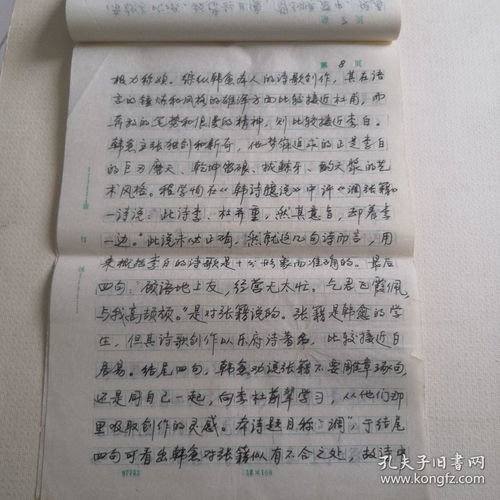 第 8 页
极力称颂。综纵韩愈本人的诗歌创作，其在语
言的锤炼和风格的雄浑方面比较接近杜甫，而
奔放的笔势和浪漫的精神，则比较接近李白。
韩愈主张独创和新奇，他梦寐追求的正是李白
的巨刃磨天、乾坤雷硠、拔鲸牙、酌天浆的艺
术风格。程学恂在《韩诗臆说》中评《调张籍》
一诗说："此诗李、杜并重，然其意旨，却著李
一边。"此说未必正确，然就这几句诗而言，用
来概括李白的诗歌是十分形象而准确的。最后
四句："顾语地上友，经营无太忙。乞君飞霞佩，
与我高颉颃。"是对张籍说的。张籍是韩愈的学
生，但其诗歌创作以乐府诗著名，比较接近白
居易。结尾四句，韩愈劝说张籍不要雕章琢句，
还是同自己一起，向李杜前辈学习，从他们那
里吸取创作的灵感。本诗题目称"调"，于结尾
四句可看出韩愈对张籍似有不合之处，故诗中
孔夫子旧书网